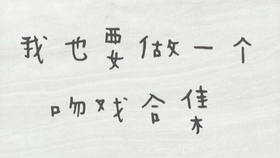 我也要做一个
吻戏合集